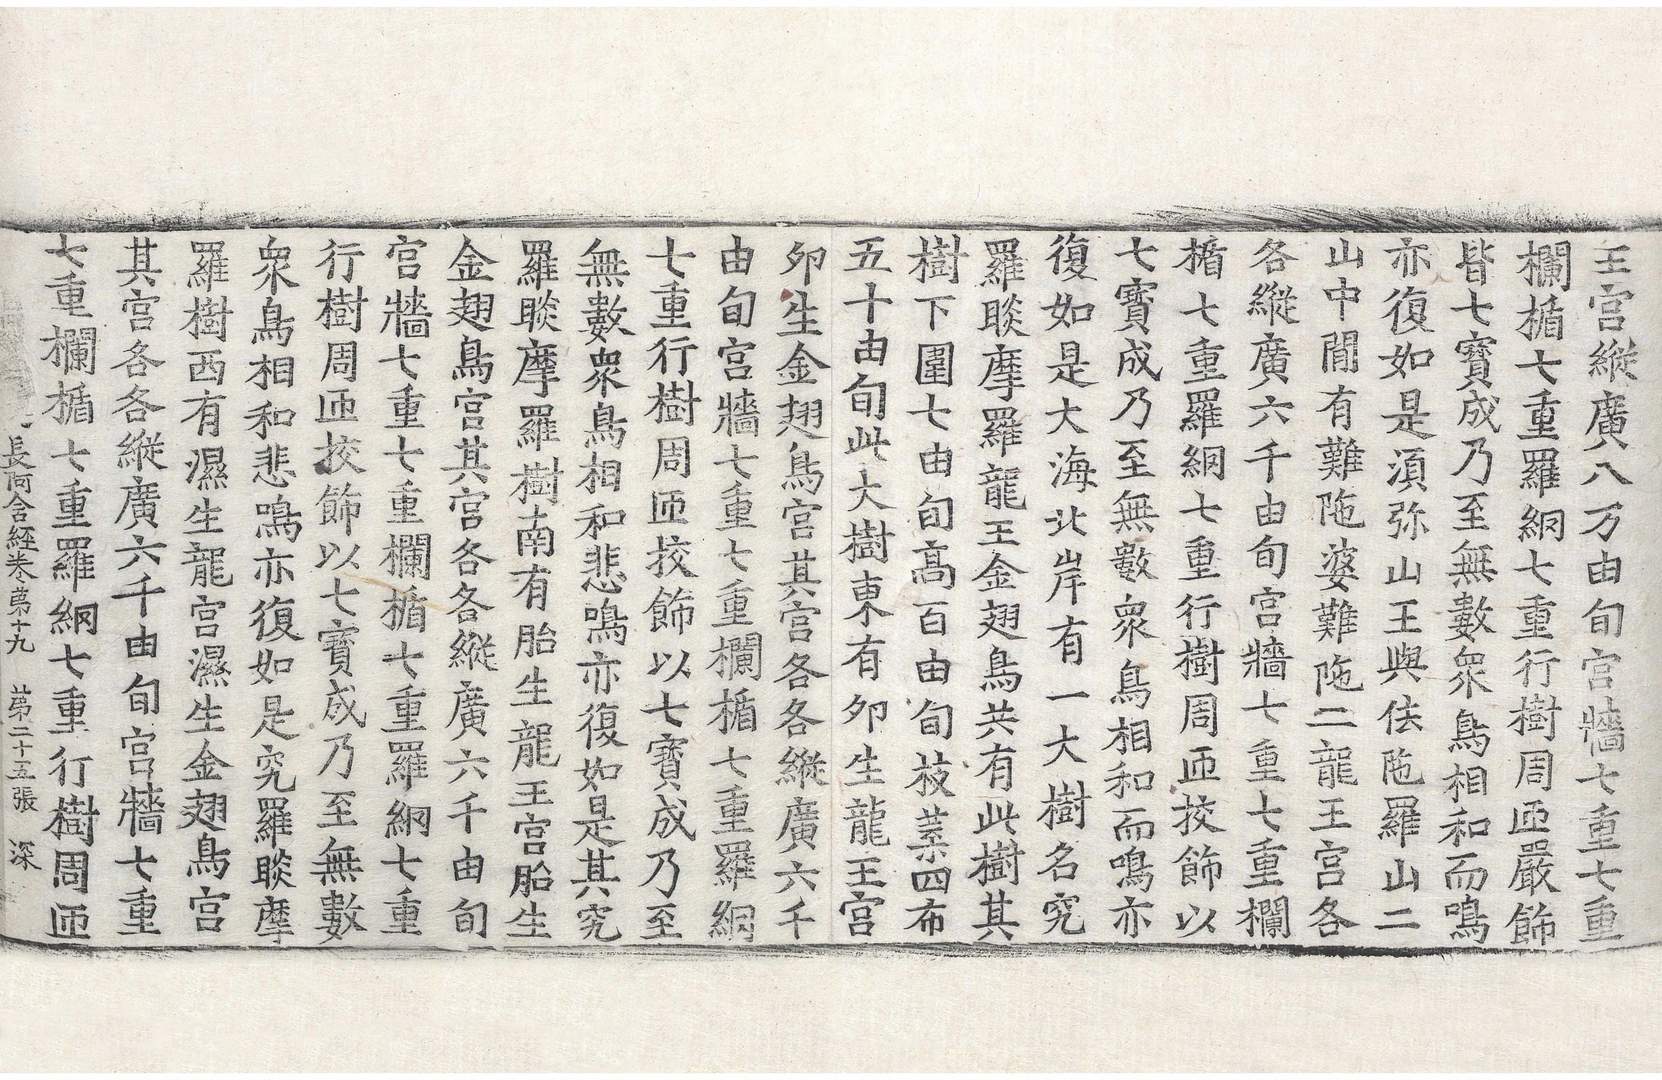 王宮縱廣八万由旬宮牆七重七重
欄楯七重羅網七重行樹周匝嚴飾
皆七寶成乃至無數衆鳥相和而鳴
亦復如是須弥山王與佉陁羅山二
山中閒有難陁婆難陁二龍王宮各
各縱廣六千由旬宮牆七重七重欄
楯七重羅網七重行樹周匝挍飾以
七寶成乃至無數衆鳥相和而鳴亦
復如是大海北岸有一大樹名究
羅睒摩羅龍王金翅鳥共有此樹其
樹下圍七由旬高百由旬枝葉四布
五十由旬此大樹東有卵生龍王宮
卵生金翅鳥宮其宮各各縱廣六千
由旬宮牆七重七重欄楯七重羅網
七重行樹周匝挍飾以七寶成乃至
無數衆鳥相和悲鳴亦復如是其究
羅睒摩羅樹南有胎生龍王宮胎生
金翅鳥宮其宮各各縱廣六千由旬
宮牆七重七重欄楯七重羅網七重
行樹周匝挍飾以七寶成乃至無數
衆鳥相和悲鳴亦復如是究羅睒摩
羅樹西有濕生龍宮濕生金翅鳥宮
其宮各各縱廣六千由旬宮牆七重
七重欄楯七重羅網七重行樹周匝
長阿含經卷第十九 第二十五張 深